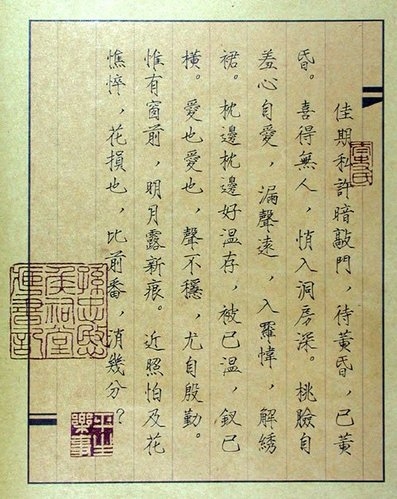 佳期私許暗敲門，待黃昏，已黃
昏。喜得無人，悄入洞房深。桃臉自
羞心自愛，漏聲遠，入羅幃，解綉
裙。枕邊枕邊好溫存，被已溫，釵已
橫。愛也愛也，聲不穩，尤自殷勤。
惟有窗前，明月露新痕。近照怕及花
憔悴，花損也，比前番，消幾分？
孫忠愍
侯祠堂
藏書記
平生
樂事